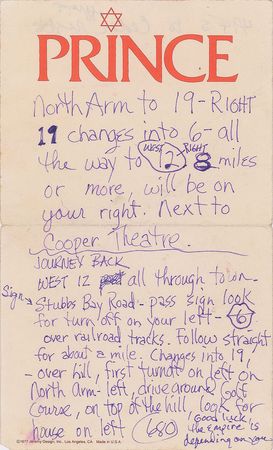 PRINCE
North Arm to 19 - RIGHT
19 changes into 6 - all
the way to WEST 12 RIGHT 8 miles
or more, will be on
your right. Next to
Cooper Theatre.
JOURNEY BACK
WEST 12 all through town -
Sign → Stubbs Bay Road - pass sign look
for turn off on your left - 6
over railroad tracks. Follow straight
for about a mile. Changes into 19,
- over hill, first turn off on left on
North Arm - left, drive around golf
course, on top of the hill look for
house on left 680 Good luck
the Empire is
depending on you
©1977 Design, Inc., Los Angeles, CA Made in U.S.A.